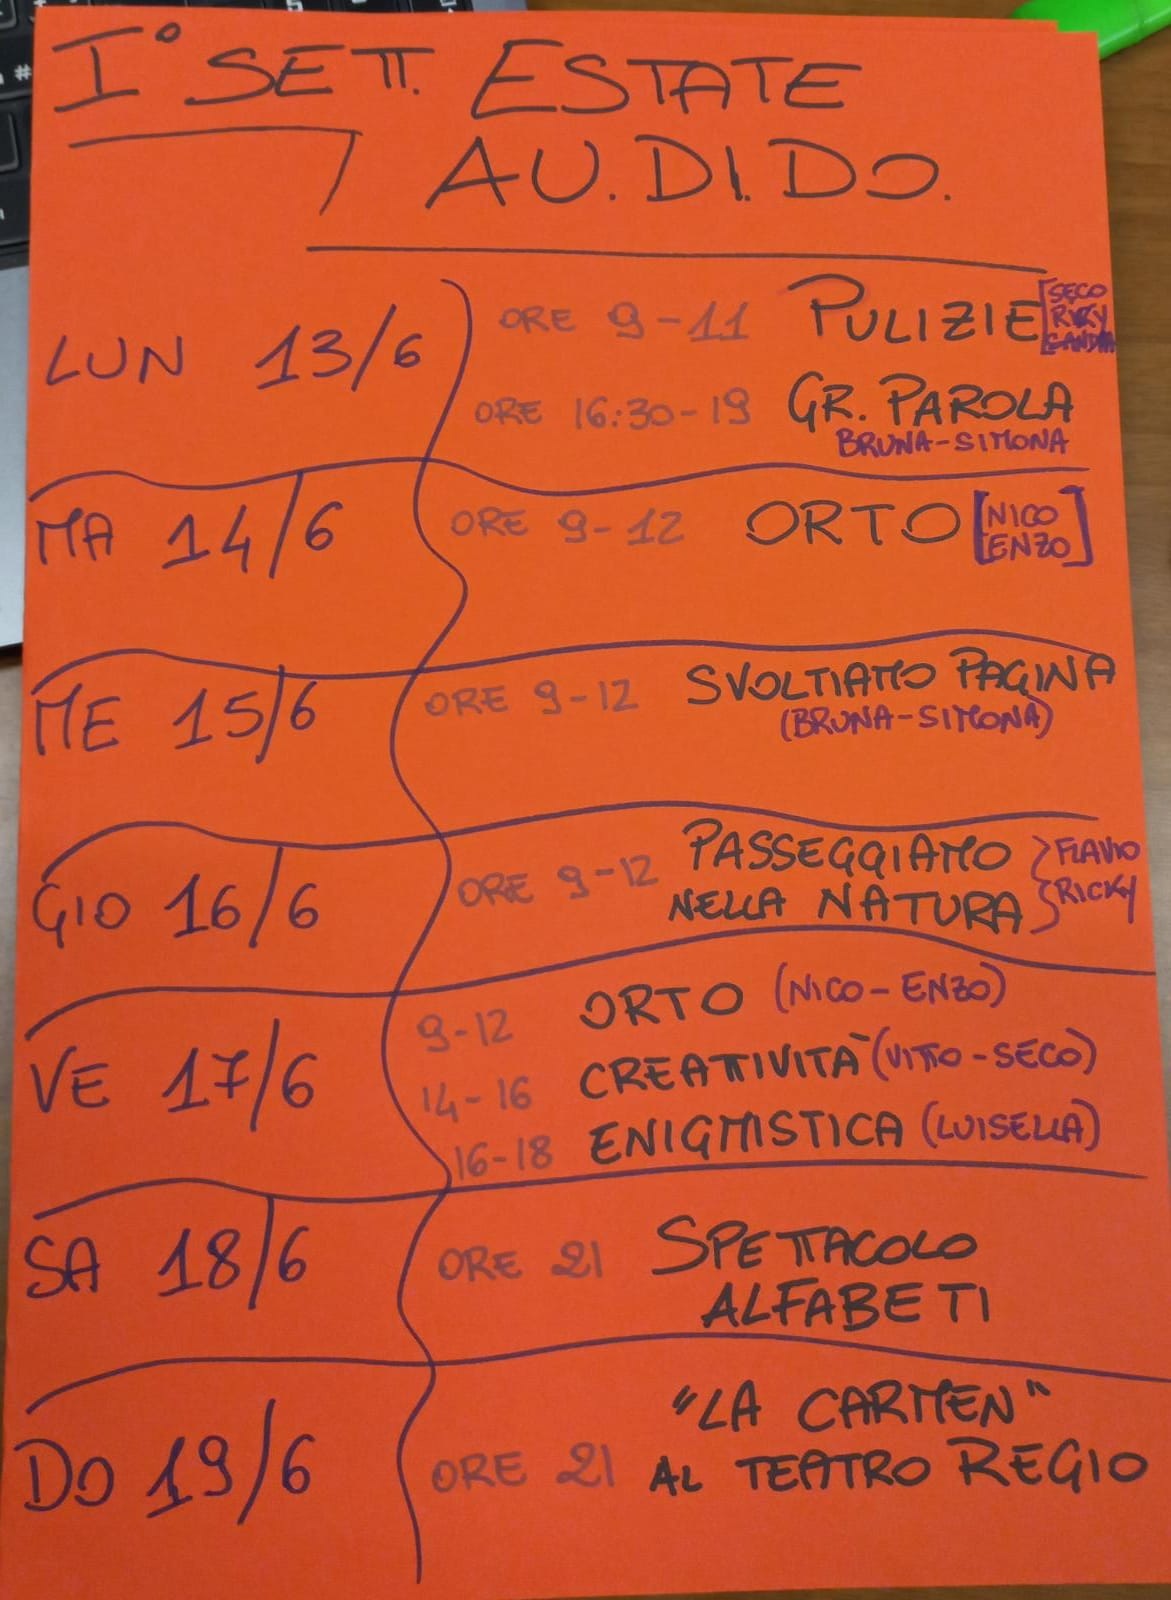 I° SETT. ESTATE
AU.DI.DO.
LUN 13/6
ORE 9-11 PULIZIE [SECO
RICKY
SANDRA
ORE 16:30-19 GR. PAROLA
BRUNA-SIMONA
MA 14/6 ORE 9-12 ORTO [NICO
ENZO]
ME 15/6 ORE 9-12 SVOLTIAMO PAGINA
(BRUNA-SIMONA)
GIO 16/6 ORE 9-12 PASSEGGIAMO
NELLA NATURA } FLAVIO
RICKY
VE 17/6
9-12 ORTO (NICO-ENZO)
14-16 CREATTIVITÀ (VITTO-SECO)
16-18 ENIGMISTICA (LUISELLA)
SA 18/6 ORE 21 SPETTACOLO
ALFABETI
DO 19/6 ORE 21 "LA CARMEN"
AL TEATRO REGIO